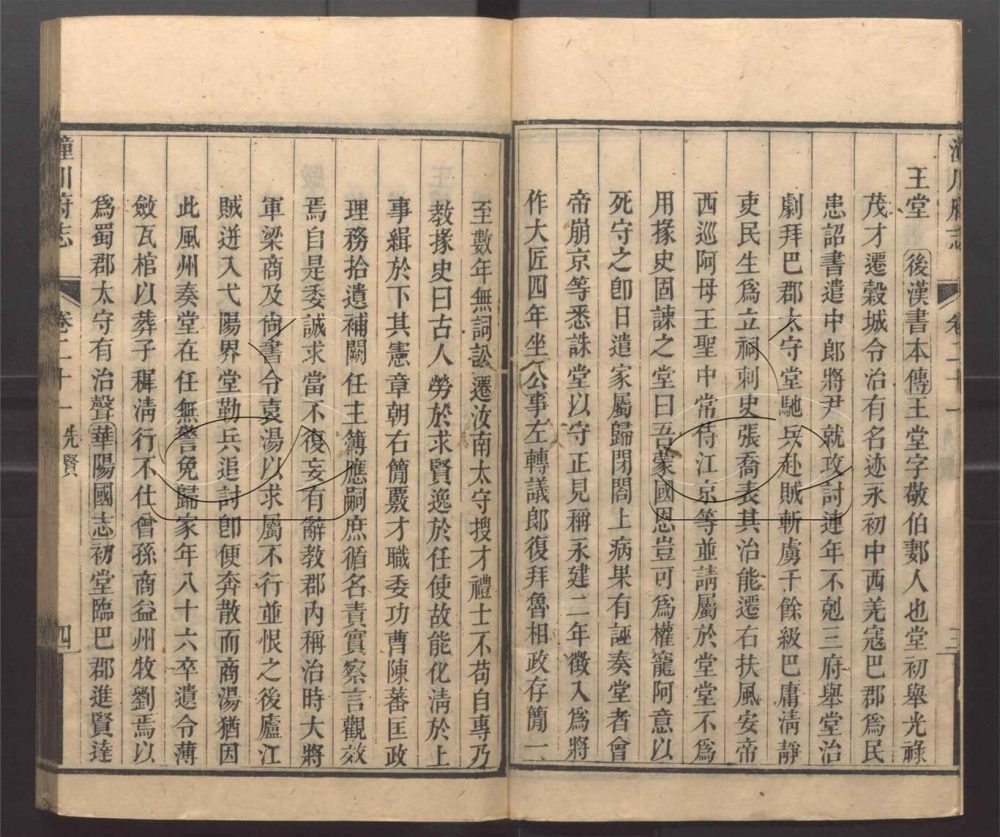 潼川府志 卷二十一 三
王堂 後漢書本傳王堂字敬伯郪人也堂初舉光祿
茂才遷穀城令治有名迹永初中西羌寇巴郡爲民
患詔書遣中郎將尹就攻討連年不剋三府舉堂治
劇拜巴郡太守堂馳兵赴賊斬虜千餘級巴庸清靜
吏民生爲立祠刺史張喬表其治能遷右扶風安帝
西巡阿母王聖中常侍江京等並請屬於堂堂不爲
用掾史固諫之堂曰吾蒙國恩豈可爲權寵阿意以
死守之卽日遣家屬歸閉閤上病果有誣奏堂者會
帝崩京等悉誅堂以守正見稱永建二年徵入爲將
作大匠四年坐公事左轉議郎復拜魯相政存簡一
至數年無詞訟遷汝南太守搜才禮士不苟自專乃
教掾史曰古人勞於求賢逸於任使故能化清於上
事緝於下其憲章朝右簡覈才職委功曹陳蕃匡政
理務拾遺補闕任主簿應嗣庶循名責實察言觀效
焉自是委誠求當不復妄有辭教郡內稱治時大將
軍梁商及尙書令袁湯以求屬不行並恨之後廬江
賊迸入弋陽界堂勒兵追討卽便奔散而商湯猶因
此風州奏堂在任無警免歸家年八十六卒遺令薄
斂瓦棺以葬子稺清行不仕曾孫商益州牧劉焉以
爲蜀郡太守有治聲華陽國志初堂臨巴郡進賢達
潼川府志 卷二十一 先賢 四